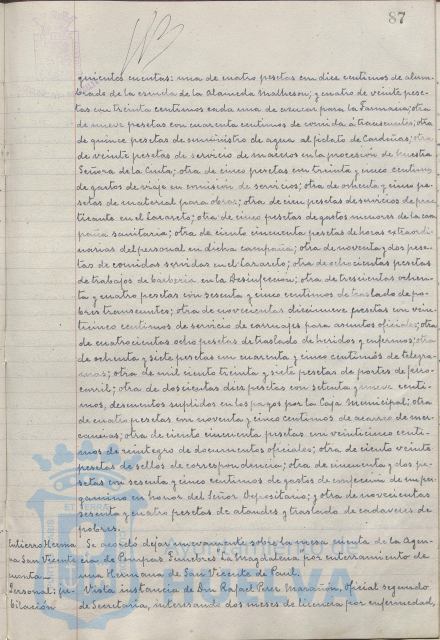 87
quientos cuentas: una de cuatro pesetas con diez centimos de alum-
brado de la escuela de la Alameda Malheson; y cuatro de veinte pese-
tas con treinta centimos cada una de azucar para la Farmacia; otra
de nueve pesetas con cuarenta centimos de comida á transeuntes; otra
de quince pesetas de suministro de agua al fielato de Cardeñas; otra
de veinte pesetas de servicio de maceros en la procesión de Nuestra
Señora de la Cinta; otra de cinco pesetas con treinta y cinco centimos
de gastos de viaje en comisión de servicios; otra de ochenta y cinco pe-
setas de material para obras; otra de cien pesetas de servicios de prac-
ticante en el Lazareto; otra de cinco pesetas de gastos menores de la cam-
paña sanitaria; otra de ciento cincuenta pesetas de horas extraordi-
narias del personal en dicha campaña; otra de noventa y dos pese-
tas de comidas servidas en el Lazareto; otra de ochocientas pesetas
de trabajos de barbería en la Desinfección; otra de trescientas ochen-
ta y cuatro pesetas con sesenta y cinco centimos de traslado de po-
bres transeuntes; otra de novecientas diecinueve pesetas con vein-
ticinco centimos de servicio de carruajes para asuntos oficiales; otra
de cuatrocientas ocho pesetas de traslado de heridos y enfermos; otra
de ochenta y siete pesetas con cuarenta y cinco centimos de telegra-
mas; otra de mil ciento treinta y siete pesetas de portes de ferro-
carril; otra de doscientas diez pesetas con setenta y nueve centi-
mos, descuentos suplidos en los pagos por la Caja Municipal; otra
de cuatro pesetas con noventa y cinco centimos de acarreo de mer-
cancias; otra de ciento cincuenta pesetas con veinticinco centi-
mos de reintegro de documentos oficiales; otra de ciento veinte
pesetas de sellos de correspondencia; otra de cincuenta y dos pe-
setas con sesenta y cinco centimos de gastos de confección de un per-
gamino en honor del Señor Depositario; y otra de novecientas
sesenta y cuatro pesetas de ataudes y traslado de cadaveres de
pobres.
Entierro Herma- Se acordó dejar nuevamente sobre la mesa cuenta de la Agen-
na San Vicente cia de Pompas Funebres La Magdalena por enterramiento de
cuenta.— una Hermana de San Vicente de Paul.
Personal: ju- Vista instancia de Don Rafael Perez Marañón, oficial segundo
bilación de Secretaría, interesando dos meses de licencia por enfermedad,